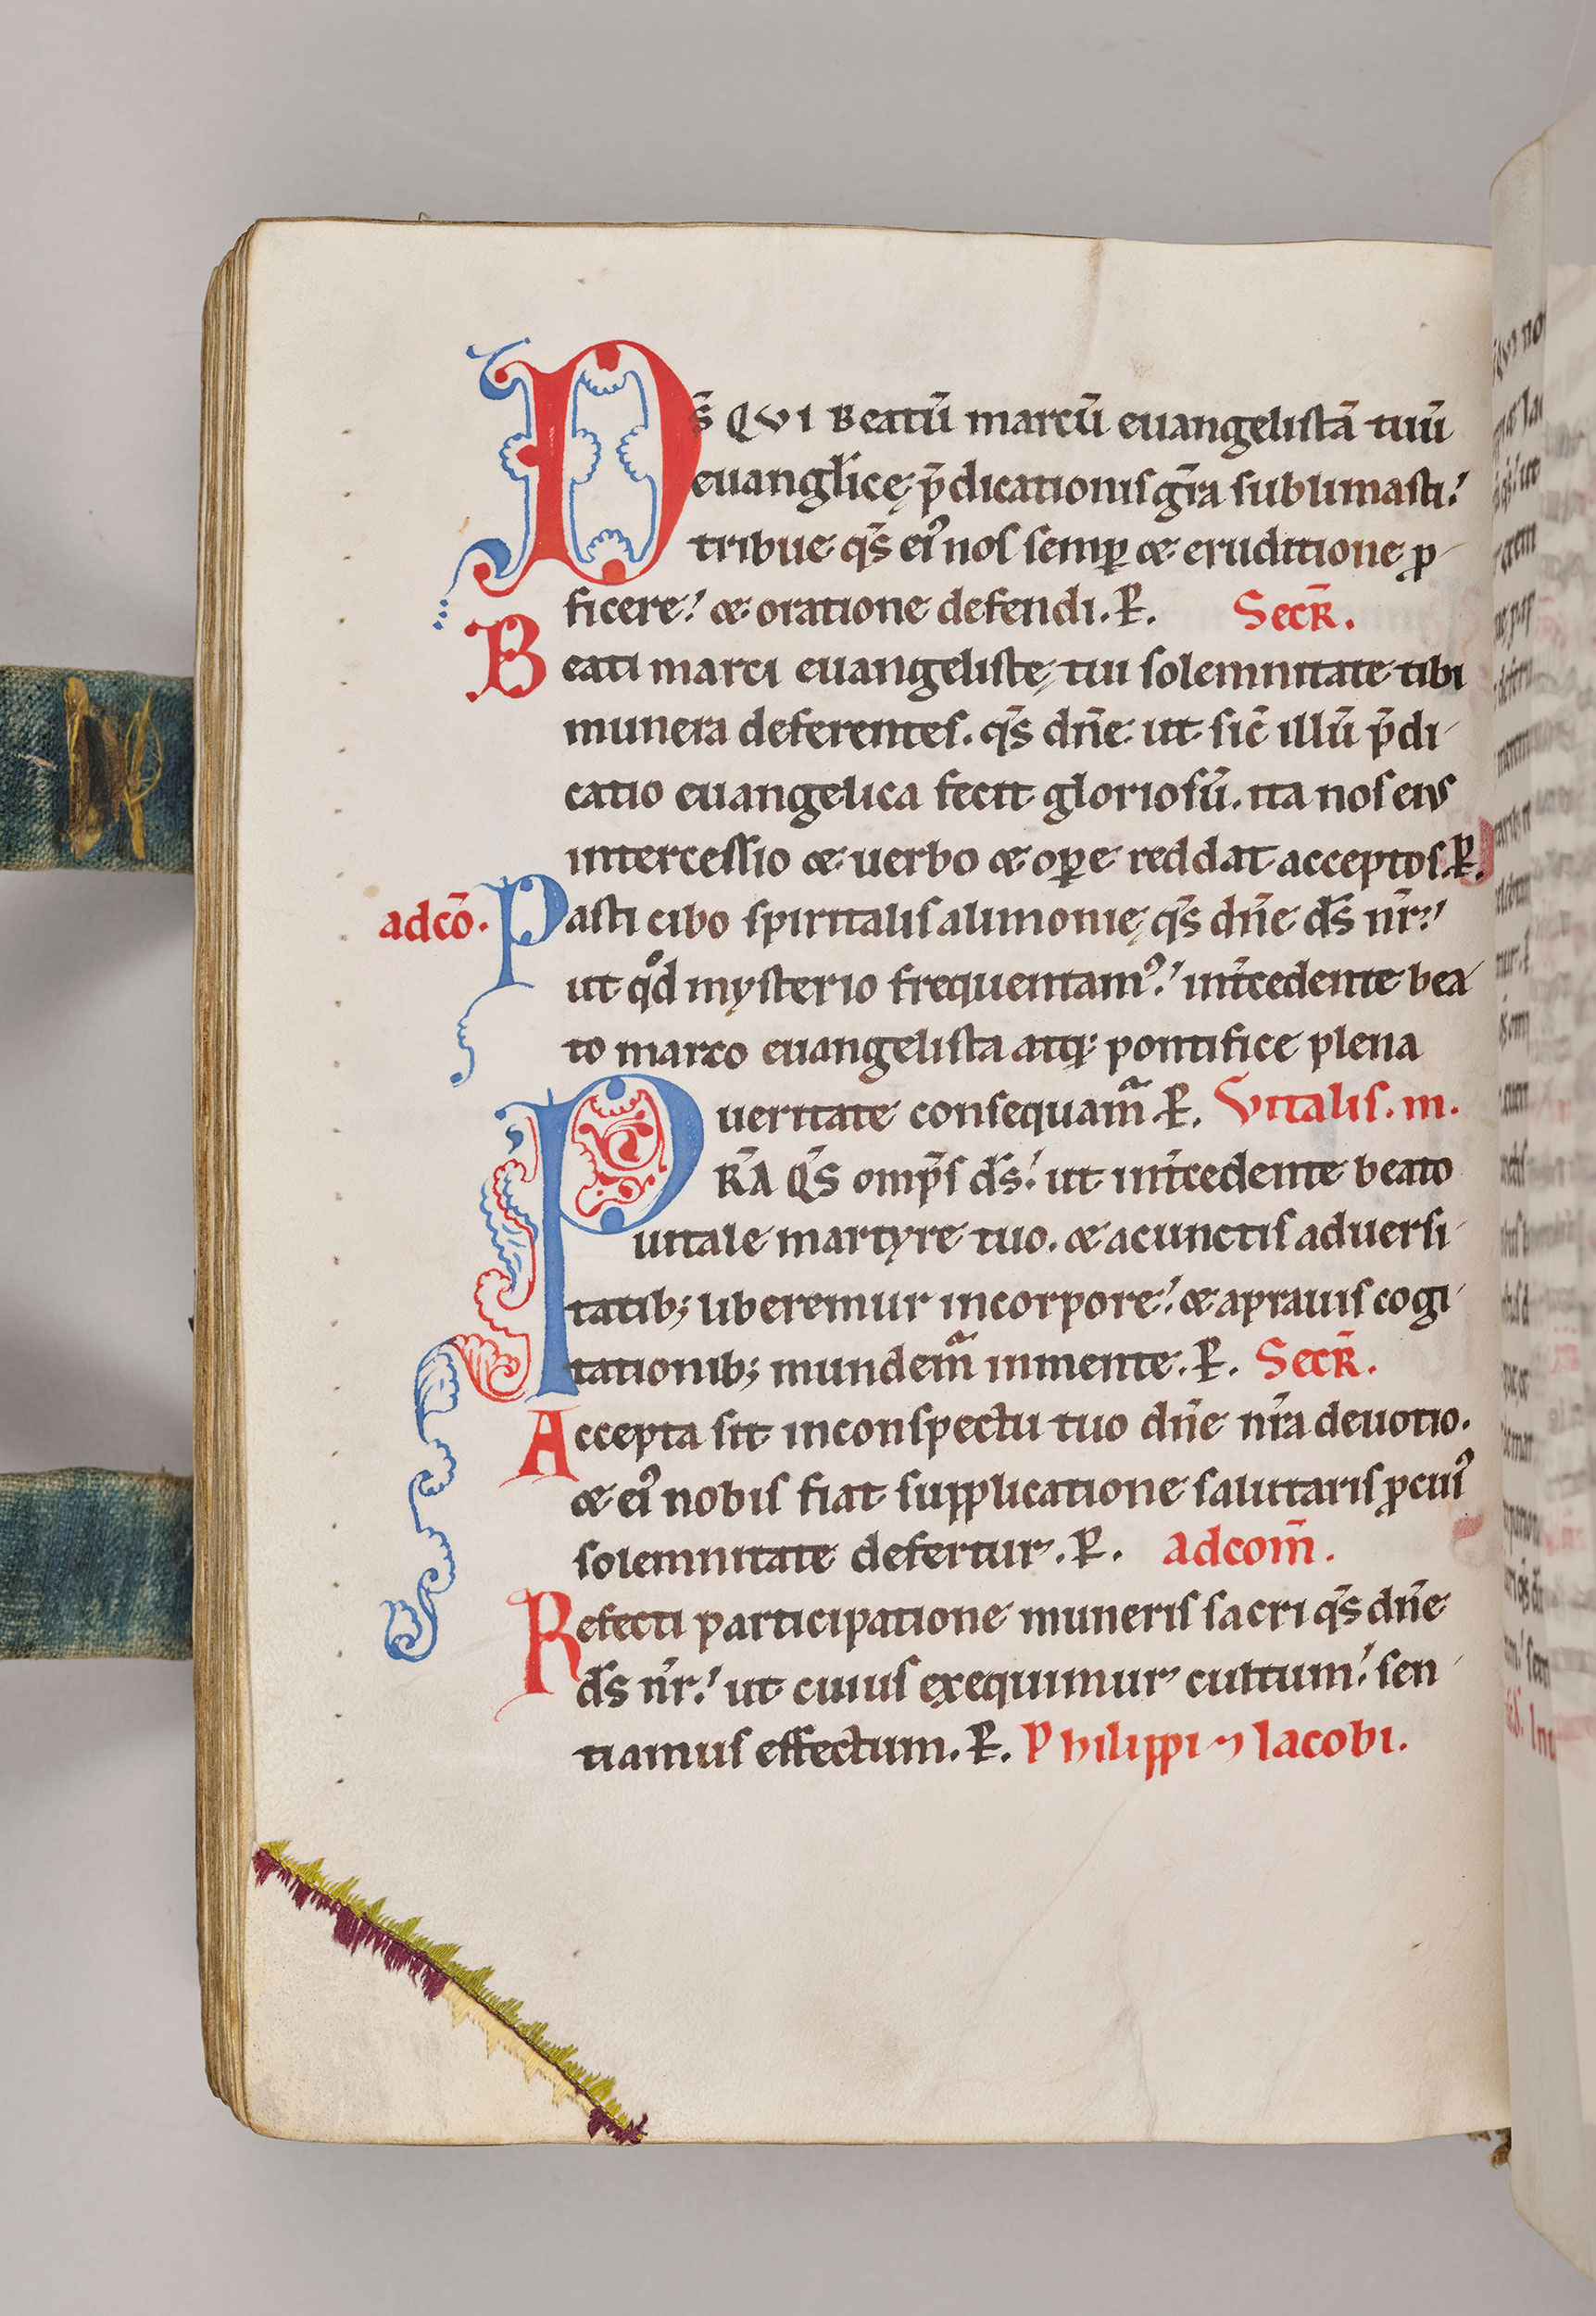 D s̄ QVI Beatū marcū euangelistā tuū
euangl'icę p̄dicationis gr̄a sublimasti.'
tribue q̄s ei᾽ nos semꝑ & eruditione ꝓ-
ficere.' & oratione defendi. P. Secr̄.
Beati marci euangelistę tui solemnitate tibi
munera deferentes. q̄s dn̄e ut sic̄ illū p̄di-
catio euangelica fecit gloriosū. ita nos eius
intercessio & uerbo & oꝑe reddat acceptos. P.
adcō. Pasti cibo spiritalis alimonię q̄s dn̄e ds̄ nr̄.'
ut qͦd mysterio frequentam᾽.' int̄cedente bea-
to marco euangelista atq; pontifice plena
ueritate consequam̄ P. Vitalis. m.
PR̄A Q̄S omp̄s ds̄.' ut int̄cedente beato
uitale martyre tuo. & acunctis aduersi-
tatib; liberemur incorpore.' & aprauis cogi-
tationib; mundem̄ inmente. P. Secr̄.
Accepta sit inconspectu tuo dn̄e nr̄a deuotio.
& ei᾽ nobis fiat supplicatione salutaris ꝓ cui᾽
solemnitate defertur. P. adcom̄.
Refecti participatione muneris sacri q̄s dn̄e
ds̄ nr̄.' ut cuius exequimur cultum.' sen-
tiamus effectum. P. Philippi ⁊ Iacobi.